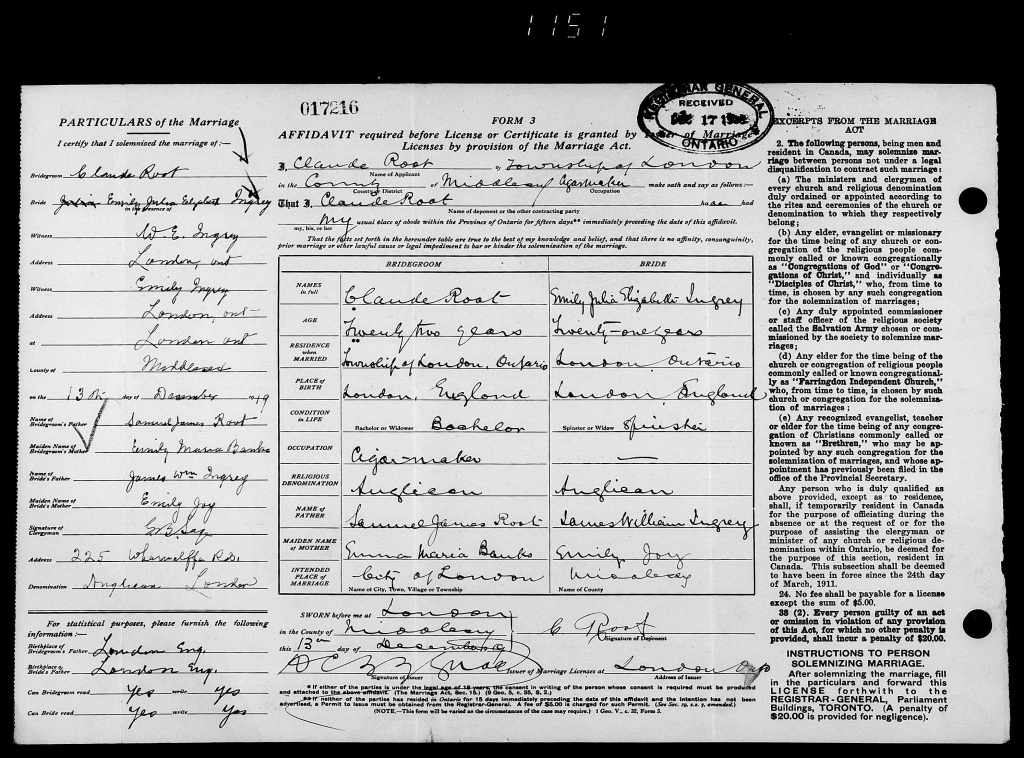 1151
017216
REGISTRAR GENERAL
RECEIVED
17
ONTARIO
PARTICULARS of the Marriage
I certify that I solemnized the marriage of:—
Bridegroom Claude Root
Bride Emily Julia Elizabeth Ingrey
in the presence of
Witness W. E. Ingrey
Address London, ont
Witness Emily Ingrey
Address London, ont
at London ont
County of Middlesex
on the 13th day of December 1919
Name of Bridegroom's Father Samuel James Root
Maiden Name of Bridegroom's Mother Emily Maria Banks
Name of Bride's Father James Wm Ingrey
Maiden Name of Bride's Mother Emily Joy
Signature of Clergyman
Address 225 Wharncliffe Rd.
Denomination Anglican London
For statistical purposes, please furnish the following
information:—
Birthplace of Bridegroom's Father London Eng.
Birthplace of Bride's Father London Eng.
Can Bridegroom read yes write yes
Can Bride read yes write yes
FORM 3
AFFIDAVIT required before License or Certificate is granted by Issuer of Marriage
Licenses by provision of the Marriage Act.
I, Claude Root of Township of London
Name of Applicant
in the County of Middlesex Cigarmaker make oath and say as follows:—
County or District Occupation
That I, Claude Root had
Name of deponent or the other contracting party
My usual place of abode within the Province of Ontario for fifteen days** immediately preceding the date of this affidavit.
my, his, or her
That the facts set forth in the hereunder table are true to the best of my knowledge and belief, and that there is no affinity, consanguinity,
prior marriage or other lawful cause or legal impediment to bar or hinder the solemnization of the marriage.
BRIDEGROOM BRIDE
NAMES in full Claude Root Emily Julia Elizabeth Ingrey
AGE Twenty two years Twenty-one years
RESIDENCE when MARRIED Township of London, Ontario London, Ontario
PLACE of BIRTH London, England London, England
CONDITION in LIFE Bachelor or Widower Bachelor Spinster or Widow Spinster
OCCUPATION Cigar-maker —
RELIGIOUS DENOMINATION Anglican Anglican
NAME of FATHER Samuel James Root James William Ingrey
MAIDEN NAME of MOTHER Emma Maria Banks Emily Joy
INTENDED PLACE of MARRIAGE City of London Middlesex
Name of City, Town, Village or Township Name of County
SWORN before me at London
in the County of Middlesex C. Root
Signature of Deponent
this 13th day of December
Issuer of Marriage Licenses at London Ont
Signature of Issuer Address of Issuer
* If either of the parties is under the legal age of 18 years, the consent in writing of the person whose consent is required must be produced
and attached to the above affidavit. (The Marriage Act, Sec. 15.) (9 Geo. 5, c. 35, S. 2.)
** If neither of the parties has resided in Ontario for 15 days immediately preceding the date of this affidavit and the intention has not been
advertised, a Permit to Issue must be obtained from the Registrar-General. A fee of $5.00 is charged for such Permit. (See Sec. 19, s.s. 7, amended.)
(NOTE.—This form will be varied as the circumstances of the case may require.) 1 Geo. V., c. 32, Form 3.
EXCERPTS FROM THE MARRIAGE
ACT
2. The following persons, being men and
resident in Canada, may solemnize mar-
riage between persons not under a legal
disqualification to contract such marriage:
(a) The ministers and clergymen of
every church and religious denomination
duly ordained or appointed according to
the rites and ceremonies of the church or
denomination to which they respectively
belong;
(b) Any elder, evangelist or missionary
for the time being of any church or con-
gregation of the religious people com-
monly called or known congregationally
as "Congregations of God" or "Congre-
gations of Christ," and individually as
"Disciples of Christ," who, from time to
time, is chosen by any such congregation
for the solemnization of marriages;
(c) Any duly appointed commissioner
or staff officer of the religious society
called the Salvation Army chosen or com-
missioned by the society to solemnize mar-
riages;
(d) Any elder for the time being of the
church or congregation of religious people
commonly called or known congregational-
ly as "Farringdon Independent Church,"
who, from time to time, is chosen by such
church or congregation for the solemniza-
tion of marriages;
(e) Any recognized evangelist, teacher
or elder for the time being of any con-
gregation of Christians commonly called or
known as "Brethren," who may be ap-
pointed by any such congregation for the
solemnization of marriages, and whose ap-
pointment has previously been filed in the
office of the Provincial Secretary.
Any person who is duly qualified as
above provided, except as to residence,
shall, if temporarily resident in Canada
for the purpose of officiating during the
absence or at the request of or for the
purpose of assisting the clergyman or
minister of any church or religious de-
nomination within Ontario, be deemed for
the purpose of this section, resident in
Canada. This subsection shall be deemed
to have been in force since the 24th day
of March, 1911.
24. No fee shall be payable for a license
except the sum of $5.00.
38 (2). Every person guilty of an act
or omission in violation of any provision
of this Act, for which no other penalty is
provided, shall incur a penalty of $20.00.
INSTRUCTIONS TO PERSON
SOLEMNIZING MARRIAGE.
After solemnizing the marriage, fill
in the particulars and forward this
LICENSE forthwith to the
REGISTRAR-GENERAL, Parliament
Buildings, TORONTO. (A penalty of
$20.00 is provided for negligence).